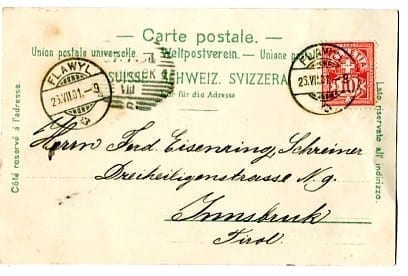 Carte postale.
Union postale universelle. — Weltpostverein. — Unione postale
SUISSE. SCHWEIZ. SVIZZERA
für die Adresse
FLAWYL
25.VII.01.–9
FLAWYL
25.VII.01.
10
Côté réservé à l'adresse.
Lato riservato all' indirizzo.
Herrn Ferd. Eisenring, Schreiner
Dreiheiligenstrasse N. 9.
Innsbruck
Tirol.